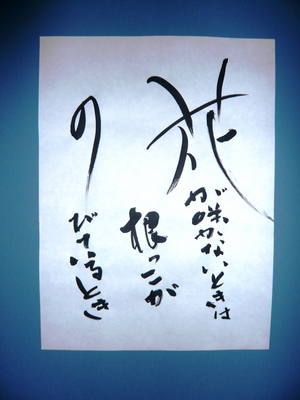 花が咲かないときは
根っこが
のびているとき